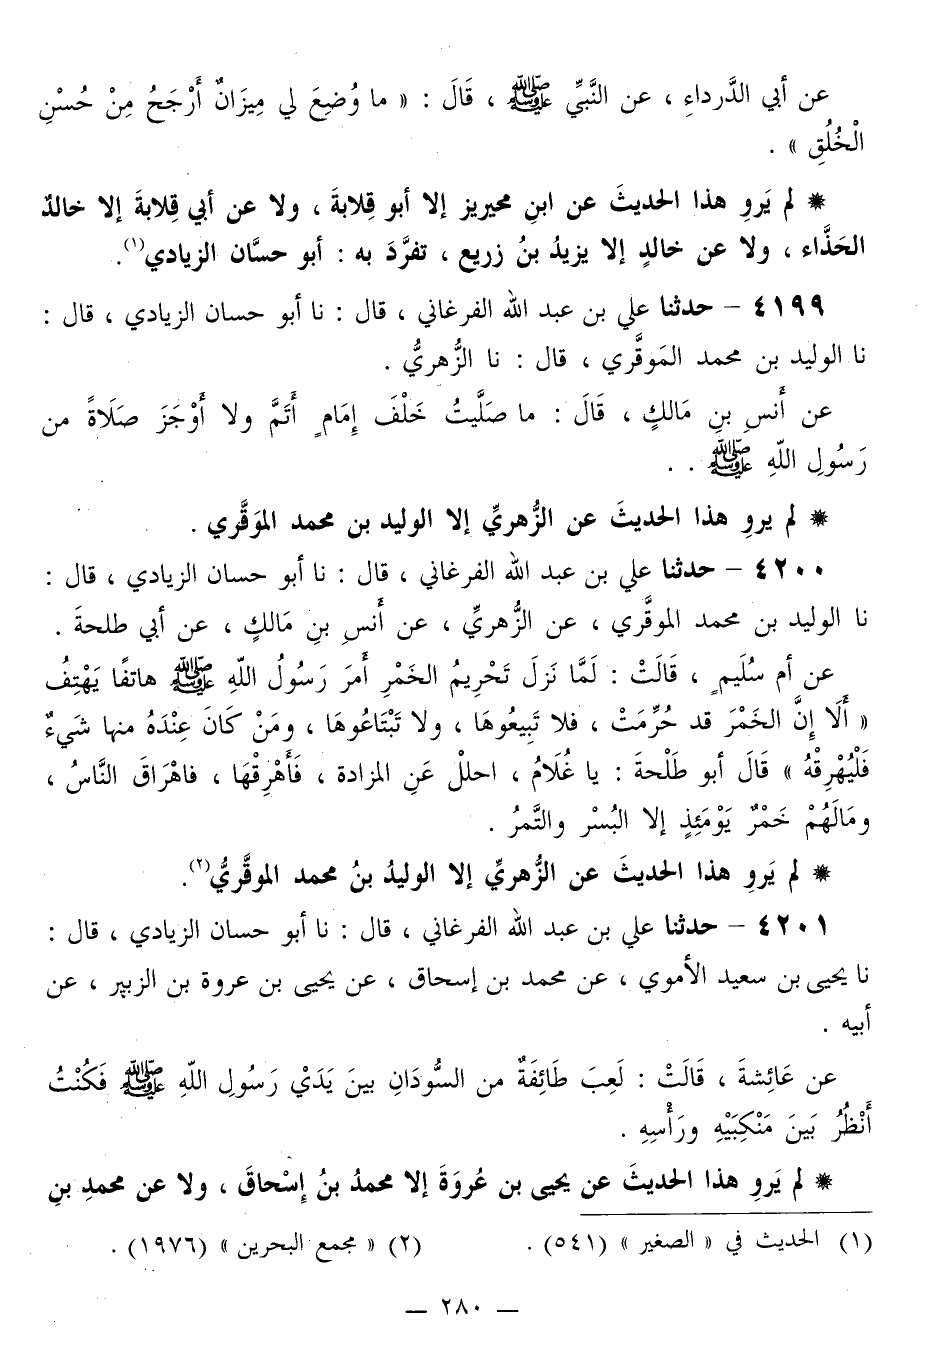 عن أبي الدَّرداءِ ، عن النَّبيِّ ﷺ ، قَالَ : « ما وُضِعَ لي مِيزَانٌ أَرْجَحُ مِنْ حُسْنِ
الْخُلُقِ » .
* لم يَروِ هذا الحديثَ عن ابنِ محيريز إلا أبو قلابةَ ، ولا عن أبي قِلابةَ إلا خالدٌ
الحَذَّاء ، ولا عن خالدٍ إلا يزيدُ بنُ زريع ، تفرَّدَ به : أبو حسَّان الزيادي(١).
٤١٩٩ - حدثنا علي بن عبد الله الفرغاني ، قال : نا أبو حسان الزيادي ، قال :
نا الوليد بن محمد المَوقَّري ، قال : نا الزُّهريُّ .
عن أَنس بنِ مَالكٍ ، قَالَ : ما صَلَّيتُ خَلْفَ إِمَامٍ أَتَمَّ ولا أَوْجَزَ صَلَاةً من
رَسُولِ اللَّهِ ﷺ . .
* لم يروِ هذا الحديثَ عن الزُّهريِّ إلا الوليد بن محمد الموَقَّري .
٤٢٠٠ - حدثنا علي بن عبد الله الفرغاني ، قال : نا أبو حسان الزيادي ، قال :
نا الوليد بن محمد الموقَّري ، عن الزُّهريِّ ، عن أَنسِ بنِ مَالكٍ ، عن أبي طلحةَ .
عن أم سُلَيمٍ ، قَالَتْ : لَمَّا نَزَلَ تَحْرِيمُ الخَمْرِ أَمَرَ رَسُولُ اللَّهِ ﷺ هاتفًا يَهْتِفُ
« أَلَا إِنَّ الخَمْرَ قد حُرِّمَتْ ، فلا تَبِيعُوهَا ، ولا تَبْتَاعُوهَا ، ومَنْ كَانَ عِنْدَهُ منها شَيءٌ
فَلْيُهْرِقْهُ » قَالَ أبو طَلْحةَ : يا غُلَامُ ، احللْ عَنِ المزادة ، فَأَهْرِقْهَا ، فاهْرَاقَ النَّاسُ ،
ومَالَهُمْ خَمْرٌ يَوْمَئِذٍ إلا البُسْر والتَّمرُ .
* لم يَروِ هذا الحديثَ عن الزُّهريِّ إلا الوليدُ بنُ محمد الموقَّريُّ(٢).
٤٢٠١ - حدثنا علي بن عبد الله الفرغاني ، قال : نا أبو حسان الزيادي ، قال :
نا يحيى بن سعيد الأموي ، عن محمد بن إسحاق ، عن يحيى بن عروة بن الزبير ، عن
أبيه .
عن عَائِشةَ ، قَالَتْ : لَعِبَ طَائِفَةٌ من السُّودَانِ بينَ يَدَيْ رَسُولِ اللَّهِ ﷺ فَكُنْتُ
أَنْظُرُ بَينَ مَنْكِبَيْهِ ورَأْسِهِ .
* لم يَروِ هذا الحديثَ عن يحيى بن عُروَةَ إلا محمدُ بنُ إسْحاقَ ، ولا عن محمدِ بنِ
(١) الحديث في « الصغير » (٥٤١) . (٢) « مجمع البحرين » (١٩٧٦) .
— ٢٨٠ —